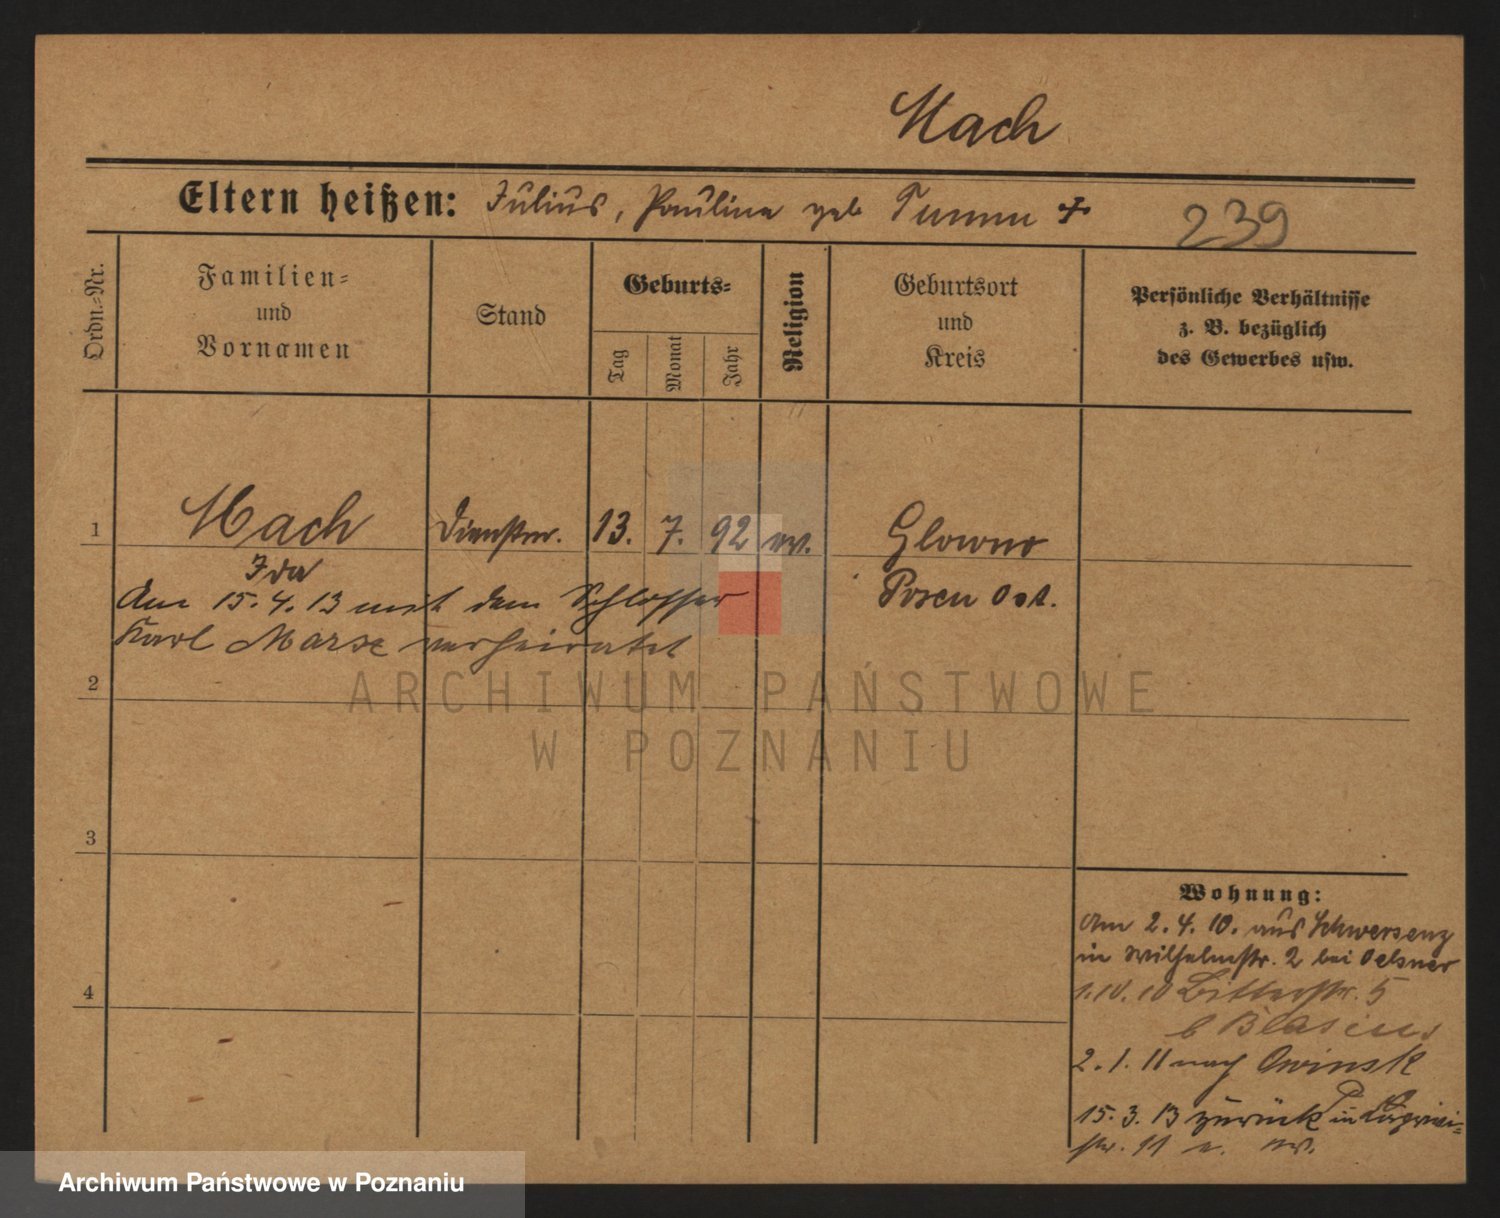 Mach
Eltern heißen: Julius, Paulina geb Tumm +
239
Ordn.=Nr.
Familien=
und
Vornamen
Stand
Geburts=
Tag
Monat
Jahr
Religion
Geburtsort
und
Kreis
Persönliche Verhältnisse
z. B. bezüglich
des Gewerbes usw.
1 Mach Dienstm. 13. 7. 92 ev. Glowno
Ida
Posen Ost.
Am 15.4.13 mit dem Schlosser
Karl verheiratet
2
3
4
ARCHIWUM PAŃSTWOWE
W POZNANIU
Wohnung:
Am 2.4.10. aus Schwersenz
in Wilhelmstr. 2 bei Oelsner
1.10.10 Bitterstr. 5
b Blasius
2.1.11 nach Owinsk
15.3.13 zurück in
str. 11
Archiwum Państwowe w Poznaniu